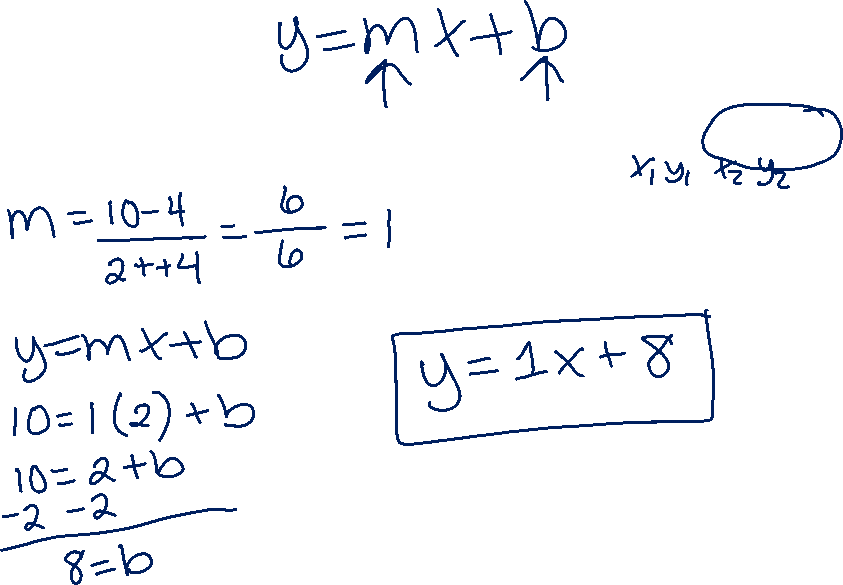 y=mx+b
↑ ↑
x₁ y₁ x₂ y₂
m = 10-4/2++4 = 6/6 = 1
y=mx+b
10=1(2)+b
10=2+b
-2 -2
8=b
y=1x+8